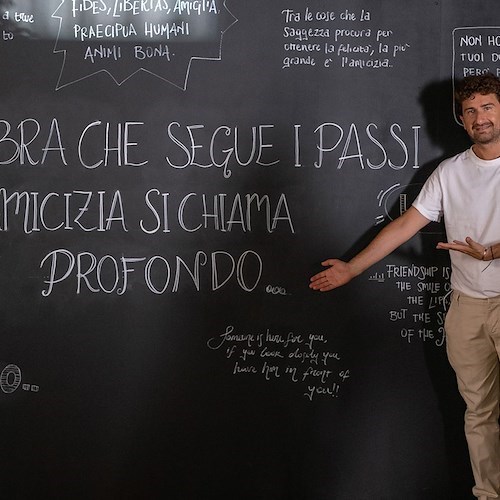 a true
to
FIDES, LIBERTAS, AMIGLIA
PRAECIPUA HUMANI
ANIMI BONA.
Tra le cose che la
Saggezza procura per
ottenere la felicità, la più
grande è l'amicizia..
NON HO
TUOI D
PERÒ
BRA CHE SEGUE I PASSI
MICIZIA SI CHIAMA
PROFONDO...
FRIENDSHIP IS
THE SMILE O
THE LIPS
BUT THE S
OF THE
Someone is here for you,
if you look closely you
have him in front of
you!!